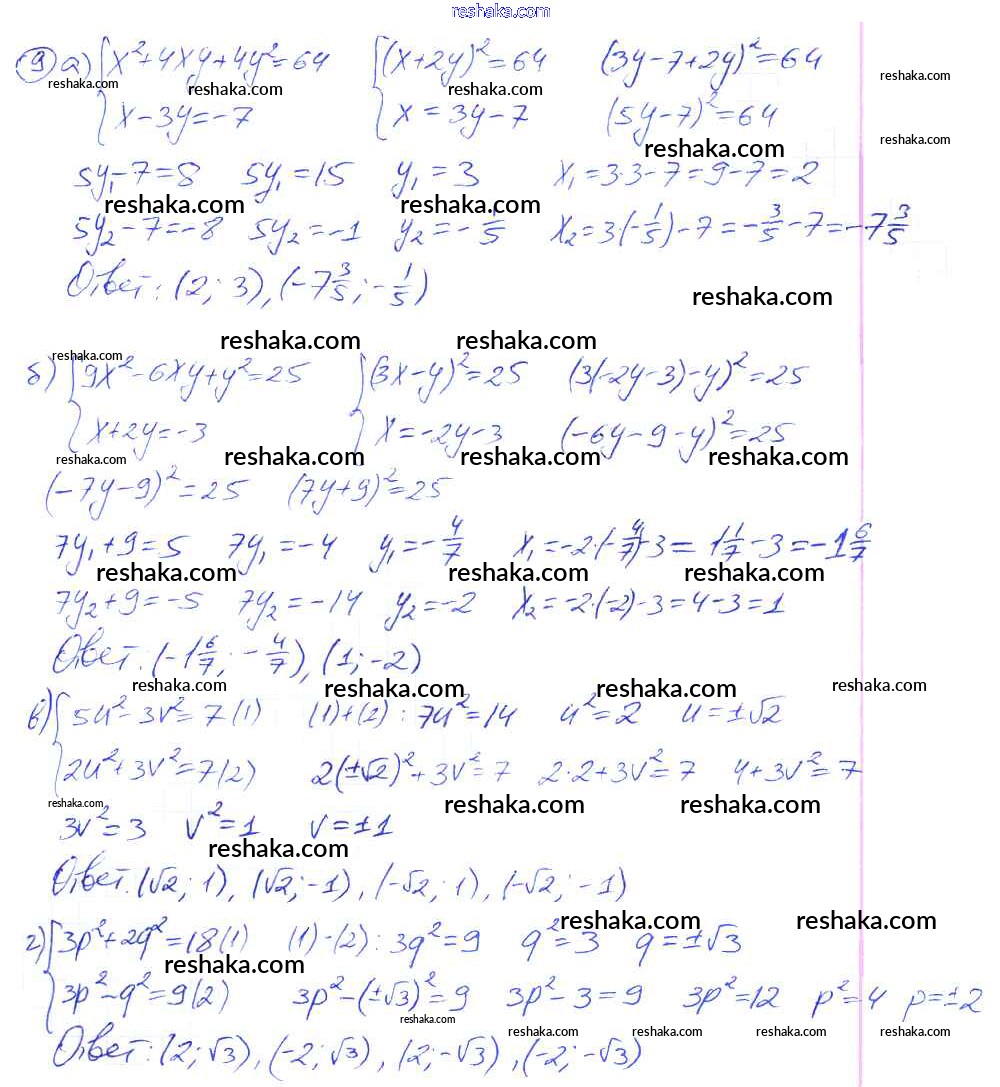 reshaka.com
9) а) { x² + 4xy + 4y² = 64   { (x + 2y)² = 64   (3y - 7 + 2y)² = 64
x - 3y = -7   x = 3y - 7   (5y - 7)² = 64
5y₁ - 7 = 8   5y₁ = 15   y₁ = 3   x₁ = 3·3 - 7 = 9 - 7 = 2
5y₂ - 7 = -8   5y₂ = -1   y₂ = -1/5   x₂ = 3(-1/5) - 7 = -3/5 - 7 = -7 3/5
Ответ: (2; 3), (-7 3/5; -1/5)
б) { 9x² - 6xy + y² = 25   { (3x - y)² = 25   (3(-2y - 3) - y)² = 25
x + 2y = -3   x = -2y - 3   (-6y - 9 - y)² = 25
(-7y - 9)² = 25   (7y + 9)² = 25
7y₁ + 9 = 5   7y₁ = -4   y₁ = -4/7   x₁ = -2·(-4/7) - 3 = 1 1/7 - 3 = -1 6/7
7y₂ + 9 = -5   7y₂ = -14   y₂ = -2   x₂ = -2·(-2) - 3 = 4 - 3 = 1
Ответ: (-1 6/7; -4/7), (1; -2)
в) { 5u² - 3v² = 7 (1)   (1) + (2): 7u² = 14   u² = 2   u = ±√2
2u² + 3v² = 7 (2)   2(±√2)² + 3v² = 7   2·2 + 3v² = 7   4 + 3v² = 7
3v² = 3   v² = 1   v = ±1
Ответ: (√2; 1), (√2; -1), (-√2; 1), (-√2; -1)
г) { 3p² + 2q² = 18 (1)   (1) - (2): 3q² = 9   q² = 3   q = ±√3
3p² - q² = 9 (2)   3p² - (±√3)² = 9   3p² - 3 = 9   3p² = 12   p² = 4   p = ±2
Ответ: (2; √3), (-2; √3), (2; -√3), (-2; -√3)